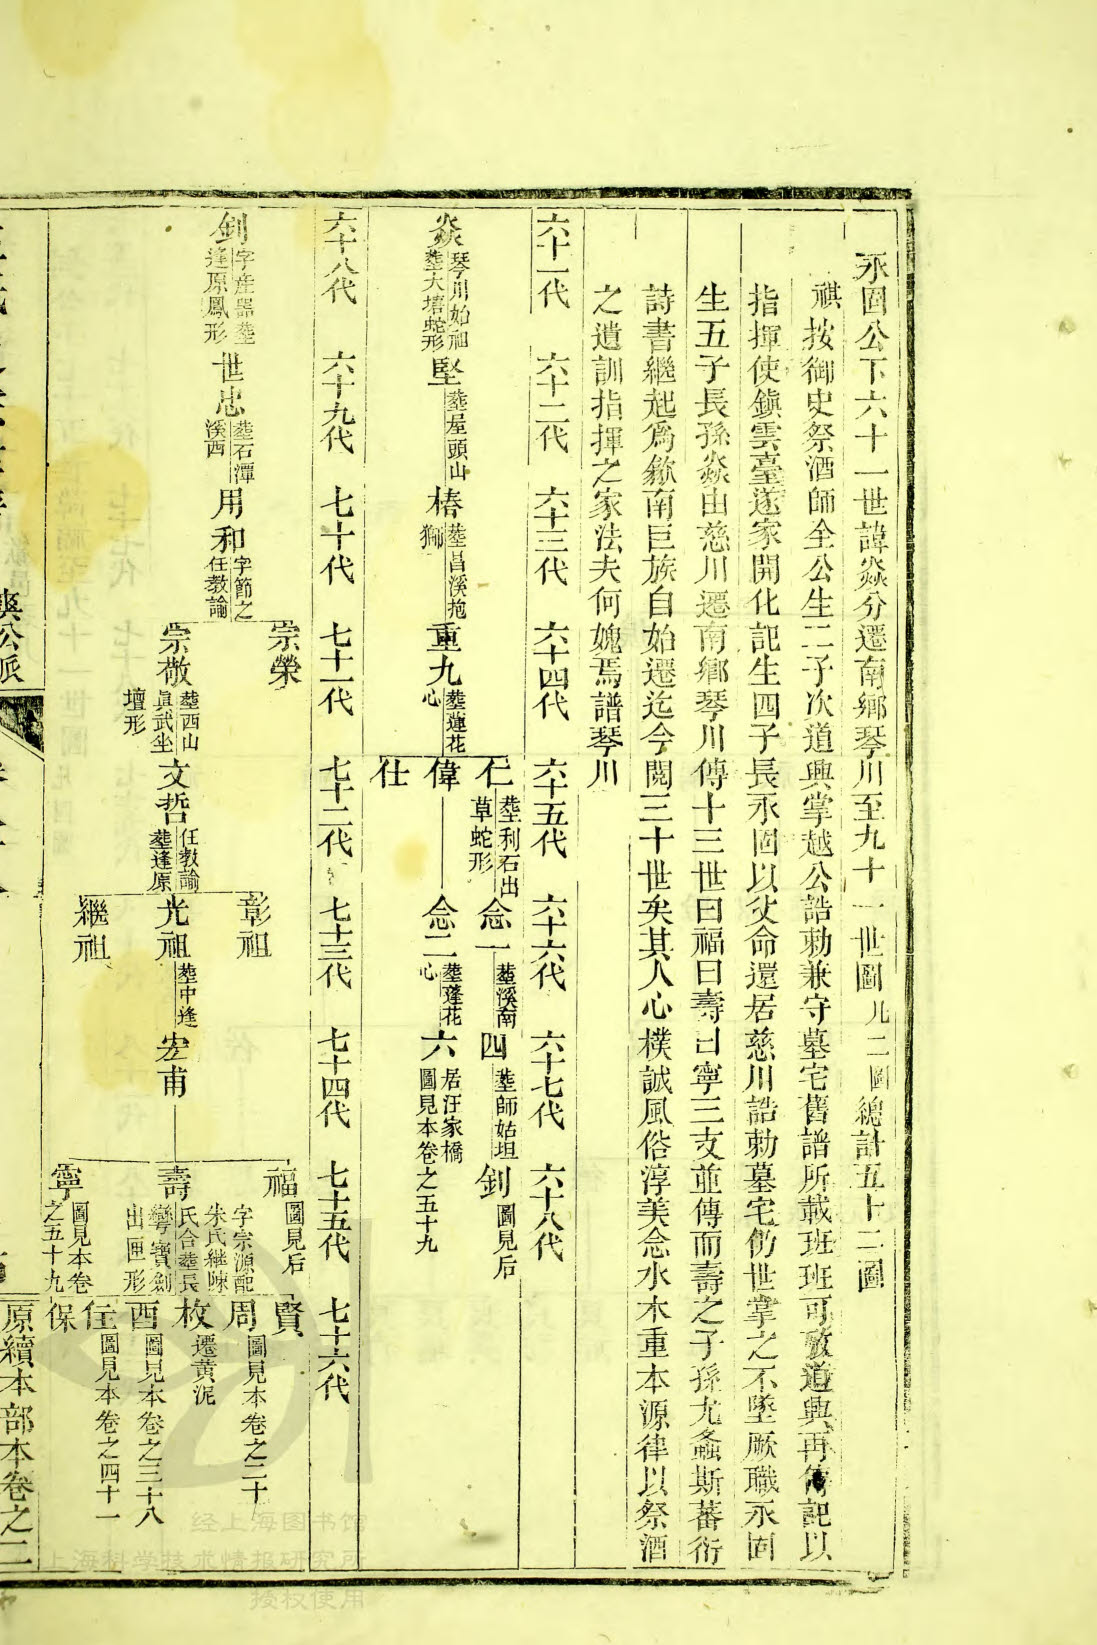 永固公下六十一世諱焱分遷南鄉琴川至九十一世圖 凡二圖總計五十二圖
祺按御史祭酒師全公生二子次道興掌越公誥勅兼守墓宅舊譜所載班班可攷道興再傳記以
指揮使鎮雲臺遂家開化記生四子長永固以父命還居慈川誥勅墓宅仍世掌之不墜厥職永固
生五子長孫焱由慈川遷南鄉琴川傳十三世曰福曰壽曰寧三支並傳而壽之子孫尤螽斯蕃衍
詩書繼起爲歙南巨族自始遷迄今閱三十世矣其人心樸誠風俗淳美念水木重本源律以祭酒
之遺訓指揮之家法夫何媿焉譜琴川
六十一代
六十二代
六十三代
六十四代
六十五代
六十六代
六十七代
六十八代
焱 琴川始祖
葬大塘蛇形
堅 葬屋頭山
椿 葬昌溪抱
獅
重九 葬蓮花
心
仁 葬利石出
草蛇形
偉
仕
念一 葬溪南
念二 葬蓬花
心
四 葬師姑坦
六 居汪家橋
圖見本卷之五十九
釗 圖見后
六十八代
六十九代
七十代
七十一代
七十二代
七十三代
七十四代
七十五代
七十六代
釗 字産器葬
逢原鳳形
世忠 葬石潭
溪西
用和 字節之
任教諭
宗榮
宗敬 葬西山
眞武坐
壇形
文哲 任教諭
葬逢原
彰祖
光祖 葬中逢
繼祖
宏甫
福 圖見后
壽 字宗源配
朱氏繼陳
氏合葬長
彎寶劍
出匣形
寧 圖見本卷
之五十九
賢
周 圖見本卷之二十
枚 遷黄泥
酉 圖見本卷之三十八
任 圖見本卷之四十一
保
爽公派
原續本部本卷之二
经上海图书馆
上海科学技术情报研究所
授权使用